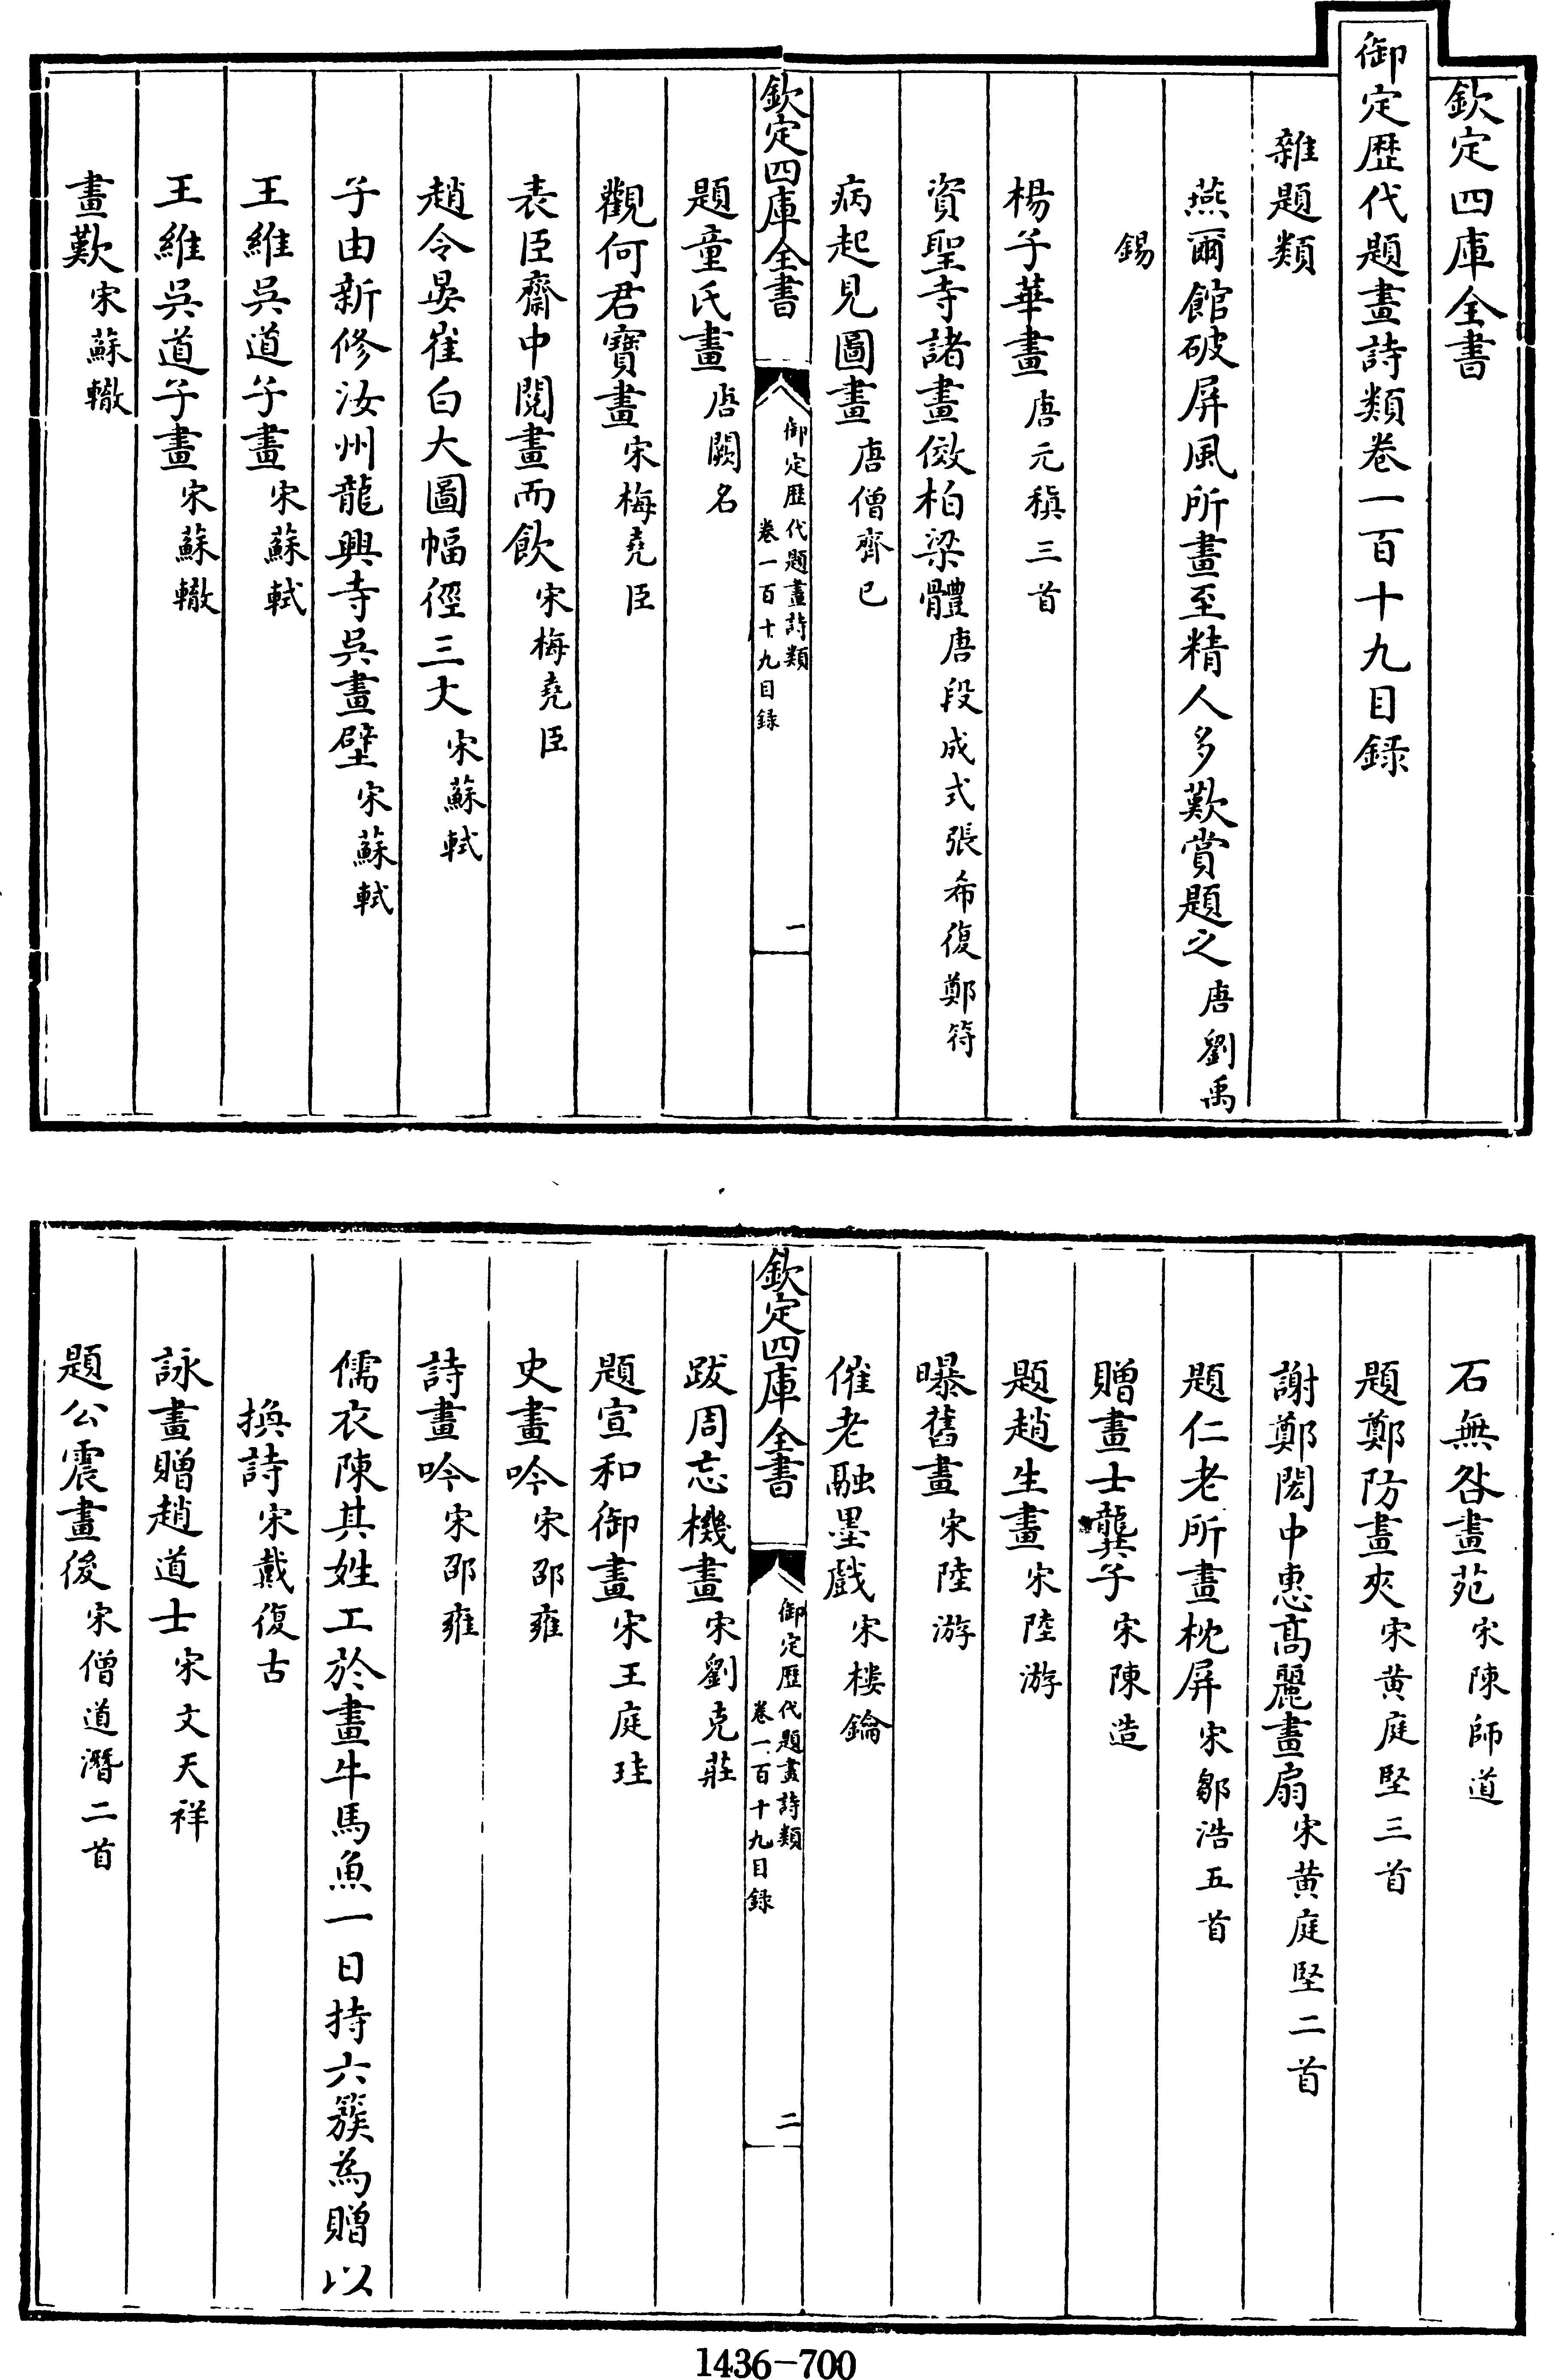 欽定四庫全書
御定歴代題畫詩類卷一百十九目録
雜題類
燕爾館破屏風所畫至精人多歎賞題之唐劉禹
錫
楊子華畫唐元稹三首
資聖寺諸畫倣柏梁體唐段成式張希復鄭符
病起見圖畫唐僧齊己
欽定四庫全書
御定歴代題畫詩類
卷一百十九目録
一
題童氏畫唐闕名
觀何君寶畫宋梅堯臣
表臣齋中閱畫而飲宋梅堯臣
趙令晏崔白大圖幅徑三丈宋蘇軾
子由新修汝州龍興寺吳畫壁宋蘇軾
王維吳道子畫宋蘇軾
王維吳道子畫宋蘇轍
畫歎宋蘇轍
石無咎畫苑宋陳師道
題鄭防畫夾宋黄庭堅三首
謝鄭閎中惠髙麗畫扇宋黄庭堅二首
題仁老所畫枕屏宋鄒浩五首
贈畫士龔子宋陳造
題趙生畫宋陸游
曝舊畫宋陸游
催老融墨戲宋樓鑰
欽定四庫全書
御定歴代題畫詩類
卷一百十九目録
二
跋周忘機畫宋劉克莊
題宣和御畫宋王庭珪
史畫吟宋邵雍
詩畫吟宋邵雍
儒衣陳其姓工於畫牛馬魚一日持六簇為贈以
換詩宋戴復古
詠畫贈趙道士宋文天祥
題公震畫後宋僧道潛二首
1436-700